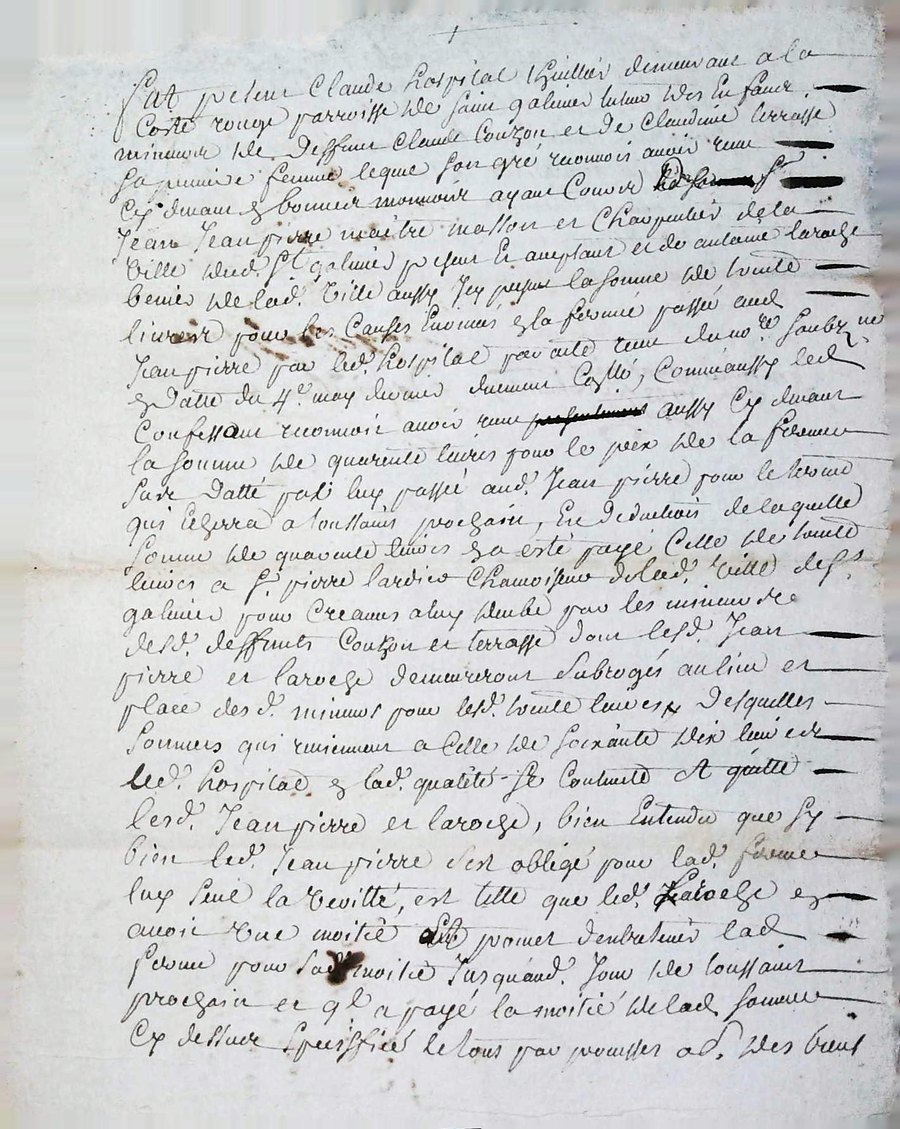 Fut présent Claude hospital thuillier demeurant a la
Coste rouge parroisse de Saint galmier tuteur des Enfans
mineurs de deffunt Claude Couzon et de Claudine terrasse
Sa premiere femme lequel de Son gré reconnois avoir receu
Cy devant en bonne monnoie ayant Cours de Sr
Jean Jeanpierre maitre masson et Charpentier de la
Ville dud. St galmier present Et aceptant et de antoine laroche
de lad. Ville aussy Icy present la Somme de trente
livres pour les Causes Enoncés en la ferme passé aud
Jeanpierre par led. hospital par acte receu du nore. Soubz.né
en Datte du 4e. may dernier duement Collé, Comme aussy led
Confessant reconnois avoir receu aussy Cy devant
la Somme de quarente livres pour le prix de la ferme
Sus Datté par luy passé aud. Jean pierre pour le terme
qui Echerra a toussains prochain, En deduction de laquelle
Somme de quarente livres en a esté payé Celle de trente
livres a Sr. pierre lardier Chamoiseur de lad. Ville de St.
galmier pour Creance a luy deube par les mineurs de
desd. deffunts Couzon et terrasse dont lesd. Jean
pierre et laroche demeureront Subrogés au lieu et
place desd. mineurs pour lesd. trente livres Desquelles
Sommes qui reviennent a Celle de Soixante dix livres
led. hospital en lad. qualité Se Contente Et quitte
lesd. Jeanpierre et laroche, bien Entendu que Sy
bien led. Jeanpierre S'est obligé pour lad. ferme
luy Seul la verité, est telle que led. laroche en
avoir une moitié promet d'entretenir lad
ferme pour Sad. moitié Jusquaud. Jour de toussains
prochain et ql. a payé la moitié de lad Somme
Cy dessus Speciffiée le tout par promesses ad. des biens